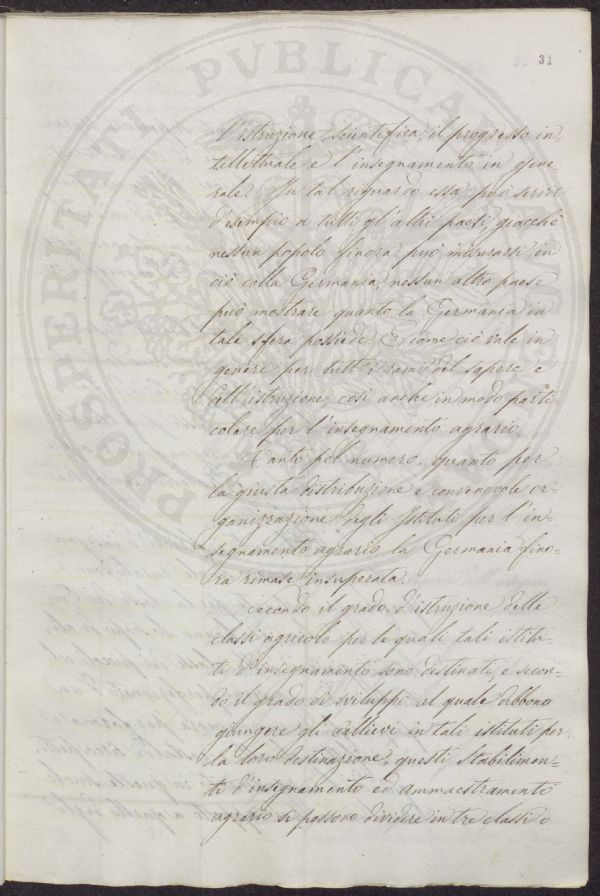 31
PROSPERITATI PVBLICAE
l'istruzione scientifica, il progresso in=
tellettuale e l'insegnamento in gene=
rale. In tal riguardo essa può servir
d'esempio a tutti gl'altri paesi, giacchè
nessun popolo finora può misurarsi in
ciò colla Germania, nessun altro paese
può mostrare quanto la Germania in
tale sfera possiede. E come ciò vale in
genere per tutti i rami del sapere e
dell'istruzione, così anche in modo parti=
colare per l'insegnamento agrario.
Tanto pel numero, quanto per
la giusta distribuzione e convenevole or=
ganizzazione degli Istituti per l'in=
segnamento agrario la Germania fino=
ra rimase insuperata.
Secondo il grado d'istruzione delle
classi agricole per le quali tali istitu=
ti d'insegnamento sono destinati, e secon=
do il grado di sviluppo al quale debbono
giungere gli allievi in tali istituti per
la loro destinazione, questi stabilimen=
ti d'insegnamento ed ammaestramento
agrario si possono dividere in tre classi o